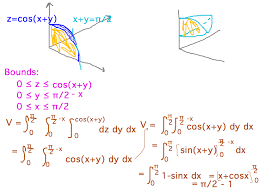 z=cos(x+y) x+y=π/2
Bounds:
0 ≤ z ≤ cos(x+y)
0 ≤ y ≤ π/2 - x
0 ≤ x ≤ π/2
V = ∫₀^(π/2) ∫₀^(π/2 - x) ∫₀^(cos(x+y)) dz dy dx
= ∫₀^(π/2) ∫₀^(π/2 - x) cos(x+y) dy dx
V = ∫₀^(π/2) ∫₀^(π/2 - x) cos(x+y) dy dx
= ∫₀^(π/2) {sin(x+y)}₀^(π/2 - x) dx
= ∫₀^(π/2) 1-sinx dx = [x+cosx]₀^(π/2)